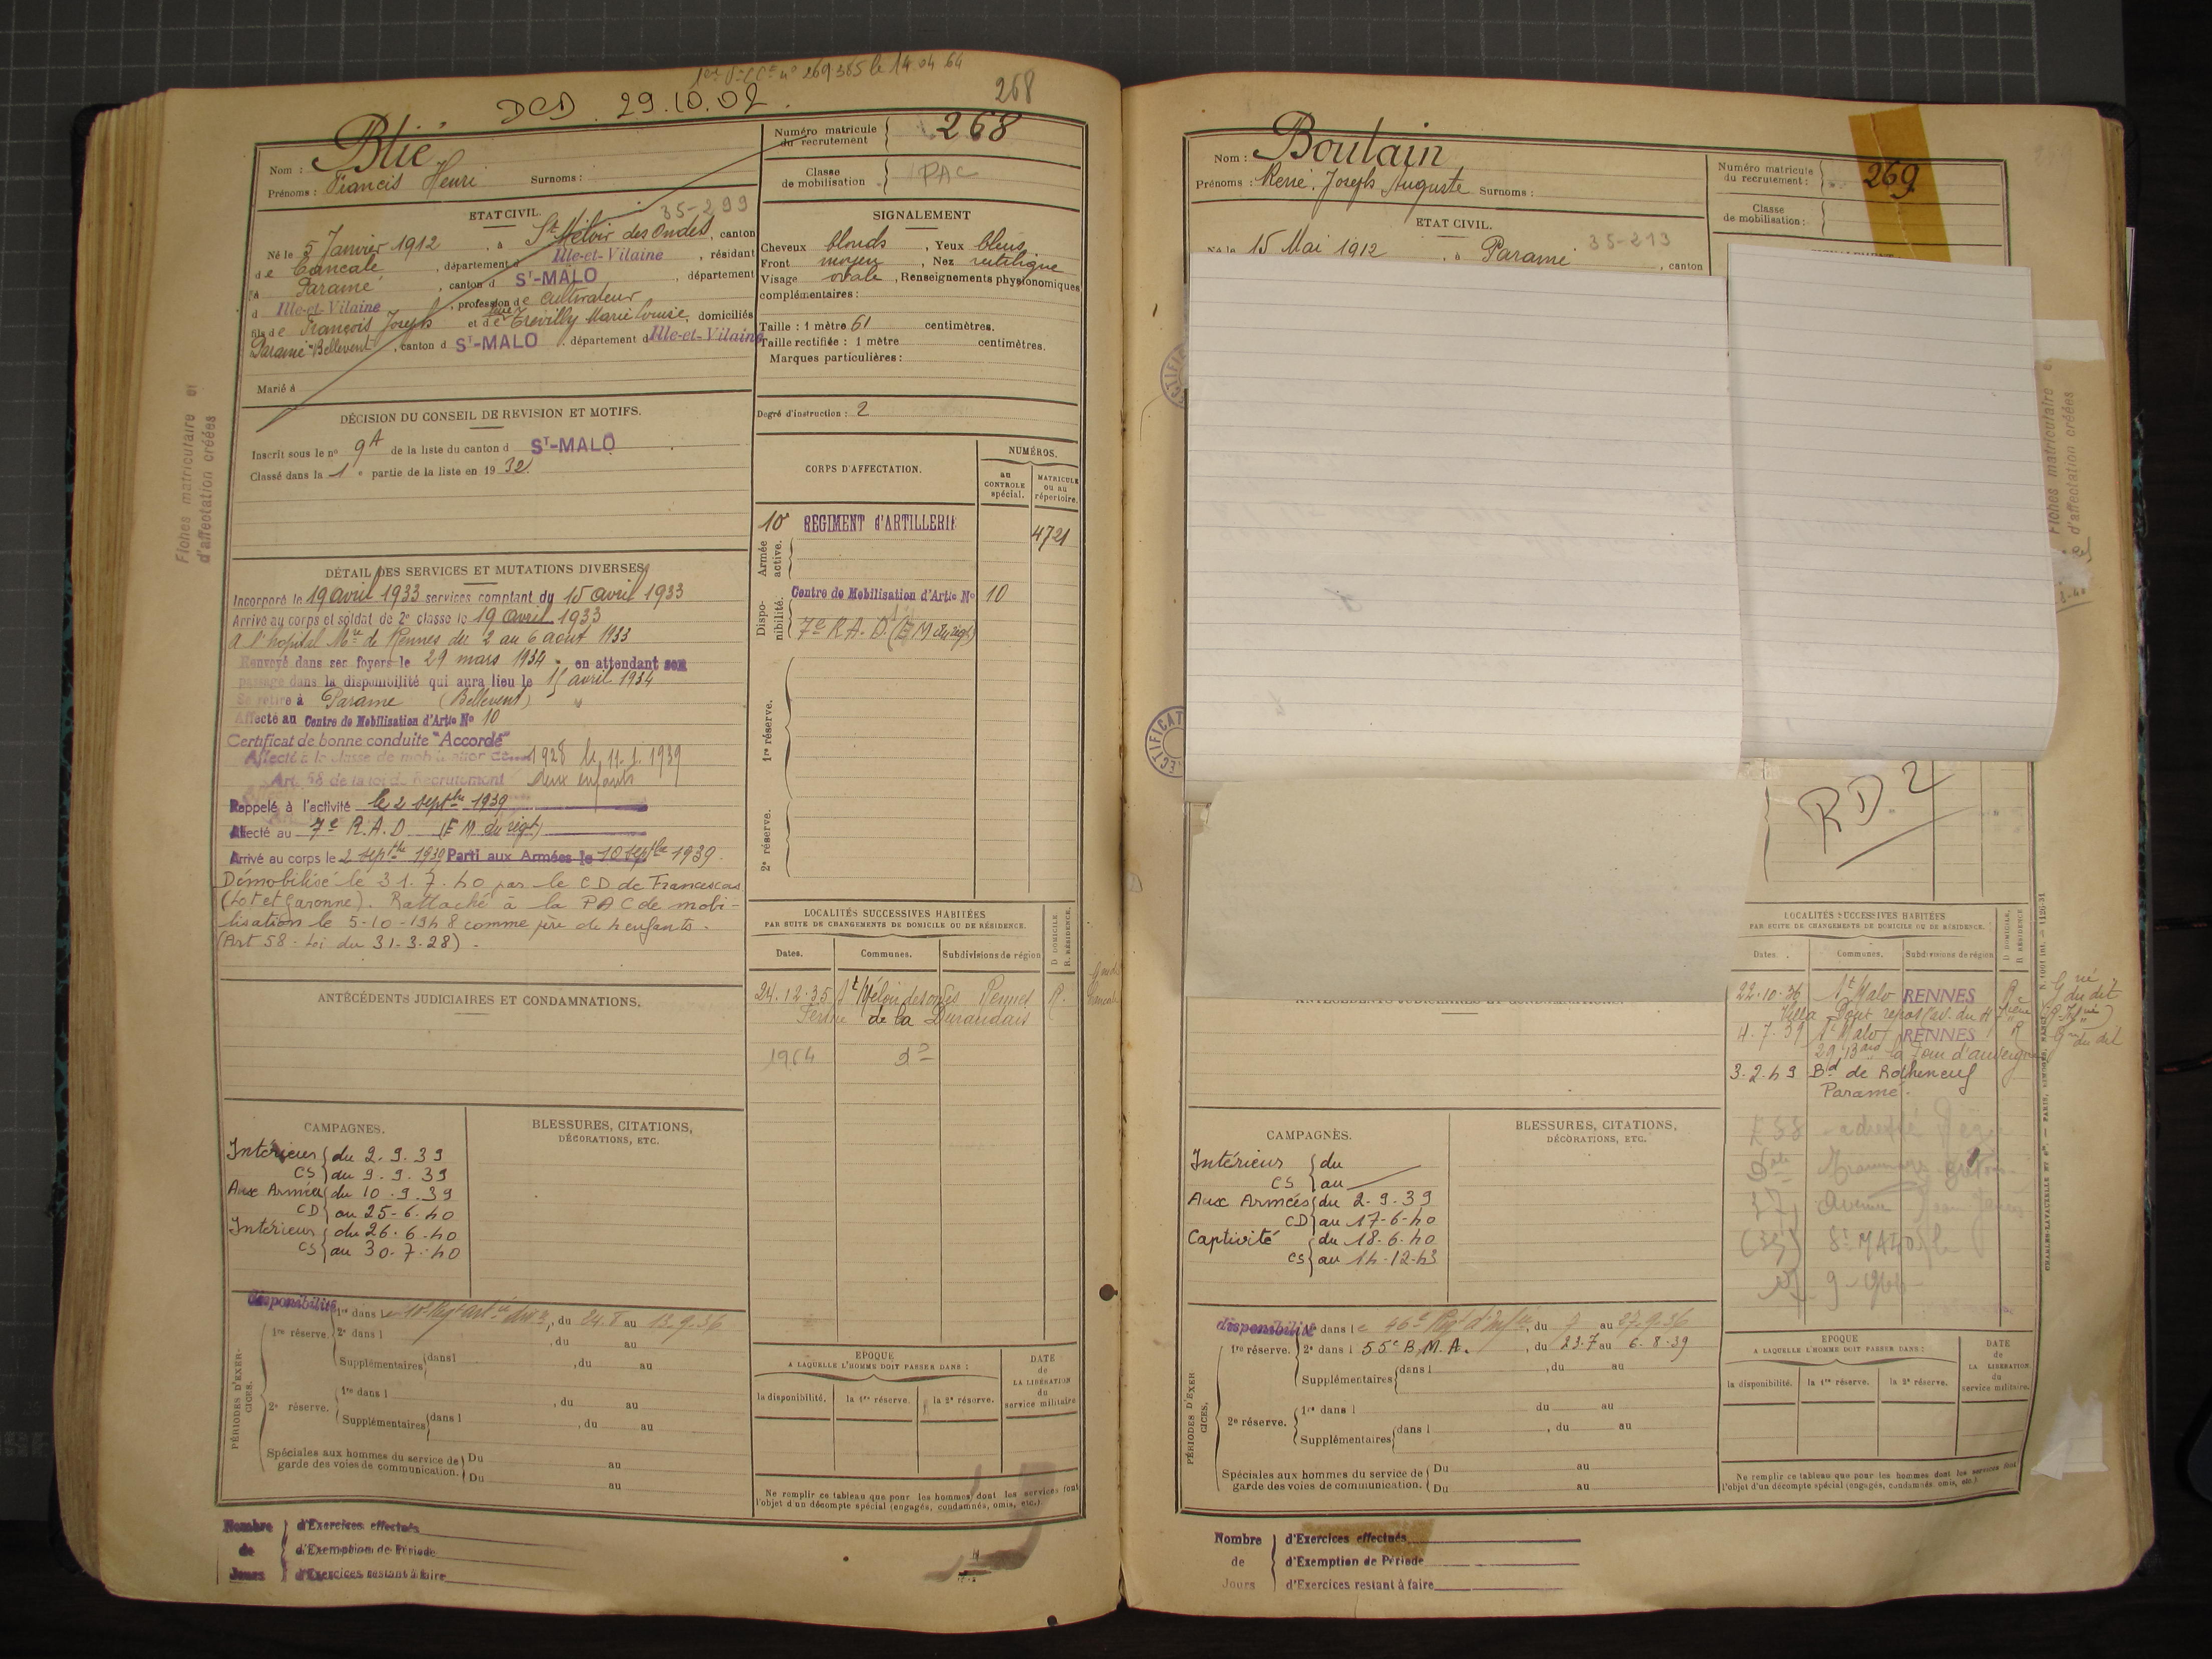 DCD. 29.10.02.
268
Nom : Blie
Prénoms : Francis Henri Surnoms :
Numéro matricule du recrutement 268
Classe de mobilisation PAC
ETAT CIVIL.
35-299
Né le 5 Janvier 1912, à St Méloir des Ondes, canton
de Cancale, département d Ille-et-Vilaine, résidant
à Paramé, canton d ST-MALO, département
d Ille-et-Vilaine, profession de cultivateur
fils de François Joseph et de Marie Louise, domiciliés
Paramé Bellevent, canton d ST-MALO, département d Ille-et-Vilaine
Marié à
SIGNALEMENT
Cheveux blonds, Yeux bleus
Front moyen, Nez rectiligne
Visage ovale, Renseignements physionomiques
complémentaires :
Taille : 1 mètre 61 centimètres.
Taille rectifiée : 1 mètre centimètres.
Marques particulières :
Degré d'instruction : 2
DÉCISION DU CONSEIL DE REVISION ET MOTIFS.
Inscrit sous le no 9A de la liste du canton d ST-MALO
Classé dans la 1e partie de la liste en 1932
Fiches matriculaire et
d'affectation créées
CORPS D'AFFECTATION.
NUMÉROS.
au CONTROLE spécial.
MATRICULE ou au répertoire.
Armée active.
10e REGIMENT d'ARTILLERIE 4721
Disponibilité.
Centre de Mobilisation d'Artie No 10
7e R.A.D. (E M du régt)
1re réserve.
2e réserve.
DÉTAIL DES SERVICES ET MUTATIONS DIVERSES
Incorporé le 19 avril 1933 services comptant du 15 avril 1933
Arrivé au corps et soldat de 2e classe le 19 avril 1933
A l'hopital Mre de Rennes du 2 au 6 aout 1933
Renvoyé dans ses foyers le 29 mars 1934 en attendant son
passage dans la disponibilité qui aura lieu le 15 avril 1934
Se retire à Paramé (Bellevent)
Affecté au Centre de Mobilisation d'Artie No 10
Certificat de bonne conduite "Accordé"
Affecté à la classe de mobilisation de 1928 le 11.1.1939
Art. 58 de la loi du Recrutement deux enfants
Rappelé à l'activité le 2 septbre 1939
Affecté au 7e R.A.D (E M du régt)
Arrivé au corps le 2 septbre 1939 Parti aux Armées le 10 septbre 1939.
Démobilisé le 31.7.40 par le CD de Francescas
(Lot et Garonne). Rattaché à la PAC de mobi-
lisation le 5-10-1948 comme père de 4 enfants.
(Art 58 - Loi du 31-3-28) -
ANTÉCÉDENTS JUDICIAIRES ET CONDAMNATIONS.
LOCALITÉS SUCCESSIVES HABITÉES
PAR SUITE DE CHANGEMENTS DE DOMICILE OU DE RÉSIDENCE.
D. DOMICILE. R. RÉSIDENCE.
Dates. Communes. Subdivisions de région
24.12.35 St Méloir des ondes Rennes R.
de la
1964 do
CAMPAGNES.
BLESSURES, CITATIONS,
DÉCORATIONS, ETC.
Intérieur du 2.9.39
CS au 9.9.39
Aux Armées du 10.9.39
CD au 25-6-40
Intérieur du 26.6.40
CS au 30.7.40
PÉRIODES D'EXERCICES.
disponibilité
1re réserve. 1re dans le 10e Regt, du 24.8 au 13.9.36
2e dans l , du au
Supplémentaires dans l , du au
2e réserve. 1re dans l , du au
Supplémentaires dans l , du au
Spéciales aux hommes du service de garde des voies de communication. Du au
Du au
EPOQUE
A LAQUELLE L'HOMME DOIT PASSER DANS :
la disponibilité. la 1re réserve. la 2e réserve.
DATE de LA LIBÉRATION du service militaire
Ne remplir ce tableau que pour les hommes dont les services font
l'objet d'un décompte spécial (engagés, condamnés, omis, etc.)
Nombre d'Exercices effectués
de d'Exemption de Période
Jours d'Exercices restant à faire
Nom : Boulain
Prénoms : René Joseph Auguste Surnoms :
Numéro matricule du recrutement : 269
Classe de mobilisation :
ETAT CIVIL.
35-213
Né le 15 Mai 1912, à Paramé, canton
Fiches matriculaire et
d'affectation créées
RD.2
LOCALITÉS SUCCESSIVES HABITÉES
PAR SUITE DE CHANGEMENTS DE DOMICILE OU DE RÉSIDENCE.
D. DOMICILE. R. RÉSIDENCE
Dates. Communes. Subdivisions de région
22-10-36 St Malo RENNES R
Villa Doux repos
4.7.39 St Malo RENNES R
29, la Tour d'auvergne
3.2.49 Bd de Rotheneuf
Paramé.
St MALO
CAMPAGNES.
BLESSURES, CITATIONS,
DÉCORATIONS, ETC.
Intérieur du
CS au
Aux Armées du 2-9-39
CD au 17-6-40
Captivité du 18.6.40
CS au 14-12-43
PÉRIODES D'EXERCICES.
disponibilité
1re réserve. 1re dans le 46e Regt d'Infie, du au 27.9.36
2e dans l 55e B.M.A., du 23.7 au 6.8.39
Supplémentaires dans l , du au
2e réserve. 1re dans l du au
Supplémentaires dans l , du au
Spéciales aux hommes du service de garde des voies de communication. Du au
Du au
EPOQUE
A LAQUELLE L'HOMME DOIT PASSER DANS :
la disponibilité. la 1re réserve. la 2e réserve.
DATE de LA LIBÉRATION du service militaire.
Ne remplir ce tableau que pour les hommes dont les services font
l'objet d'un décompte spécial (engagés, condamnés omis, etc.)
Nombre d'Exercices effectués
de d'Exemption de Période
Jours d'Exercices restant à faire